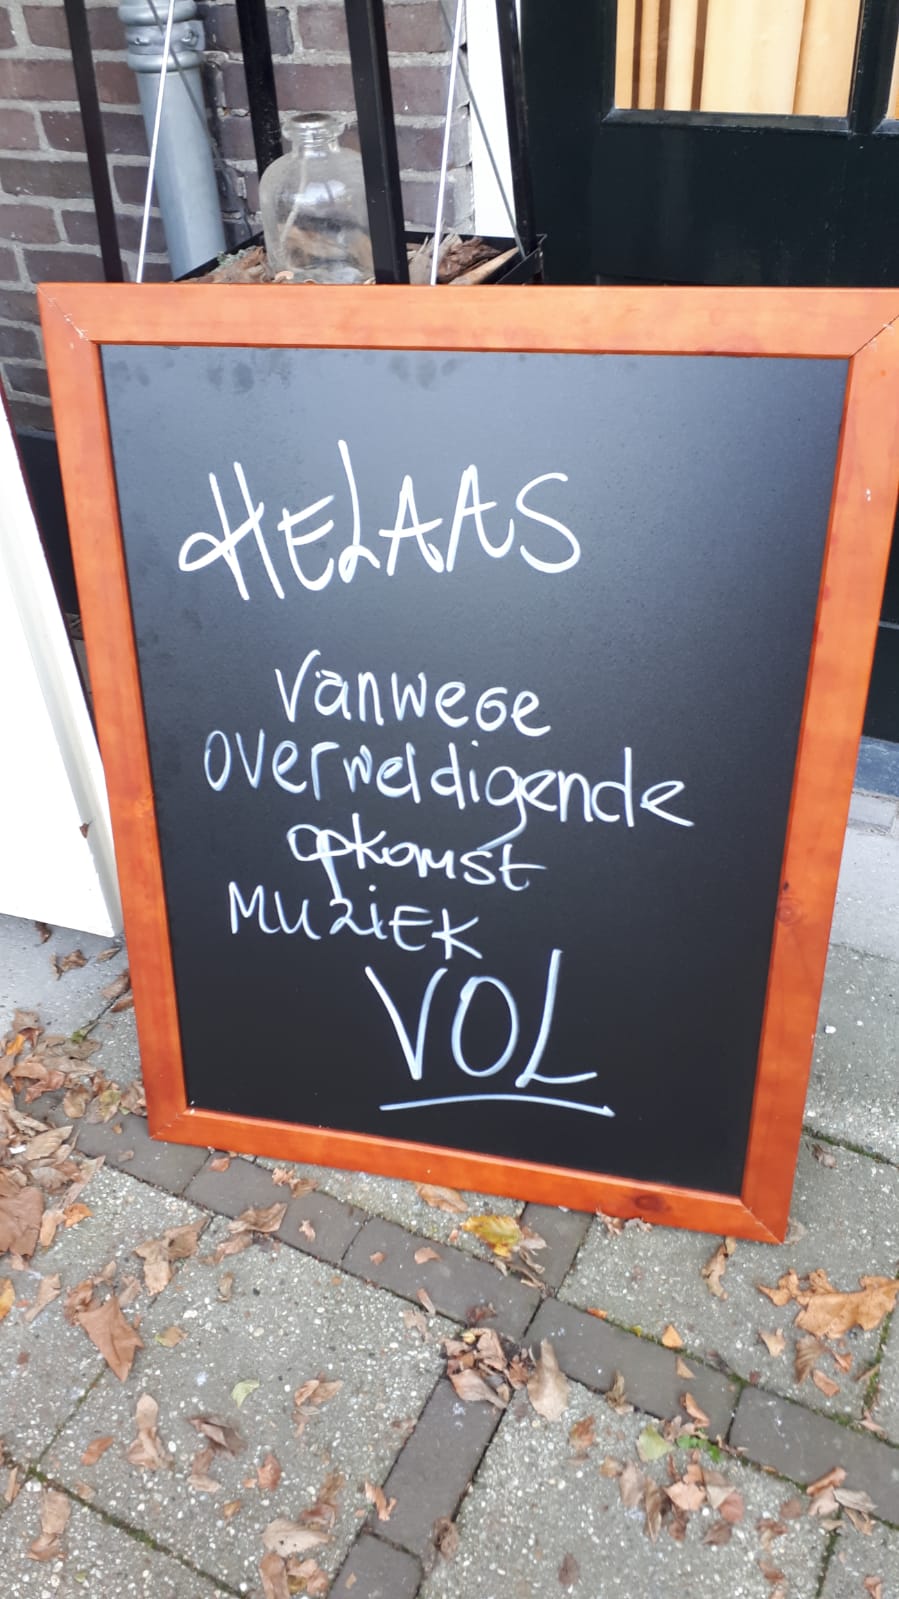 HELAAS
vanwege
overweldigende
opkomst
MUZiEK
VOL